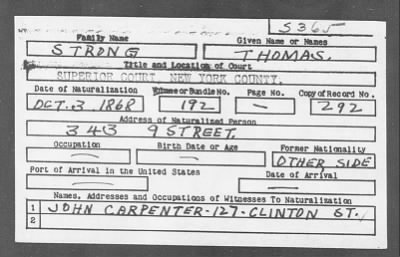 S365
Family Name Given Name or Names
STRONG THOMAS.
Title and Location of Court
SUPERIOR COURT, NEW YORK COUNTY.
Date of Naturalization Volume or Bundle No. Page No. Copy of Record No.
OCT. 3 1868 192 — 292
Address of Naturalized Person
343 9 STREET.
Occupation Birth Date or Age Former Nationality
— — OTHER SIDE
Port of Arrival in the United States Date of Arrival
— —
Names, Addresses and Occupations of Witnesses To Naturalization
1 JOHN CARPENTER-127-CLINTON ST.
2